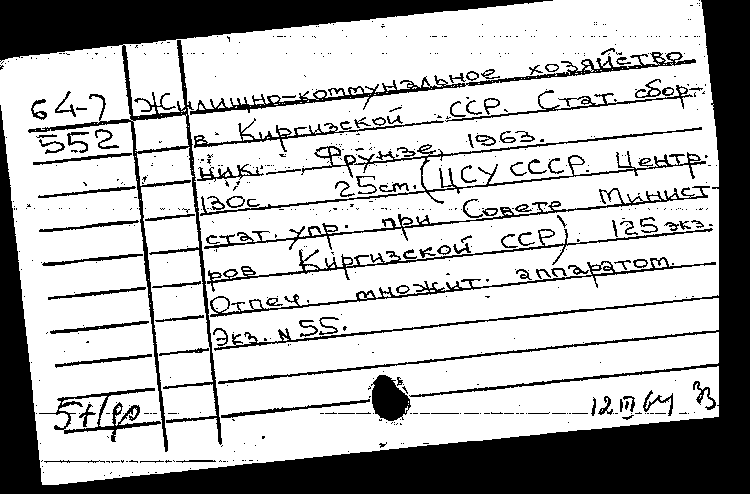 64-7 Жилищно-коммунальное хозяйство
552 в Киргизской ССР. Стат. сбор-
ник. Фрунзе, 1963.
130с. 25см. (ЦСУ СССР. Центр.
стат. упр. при Совете Минист
ров Киргизской ССР). 125 экз.
Отпеч. множит. аппаратом.
Экз. № 55.
12 III 64